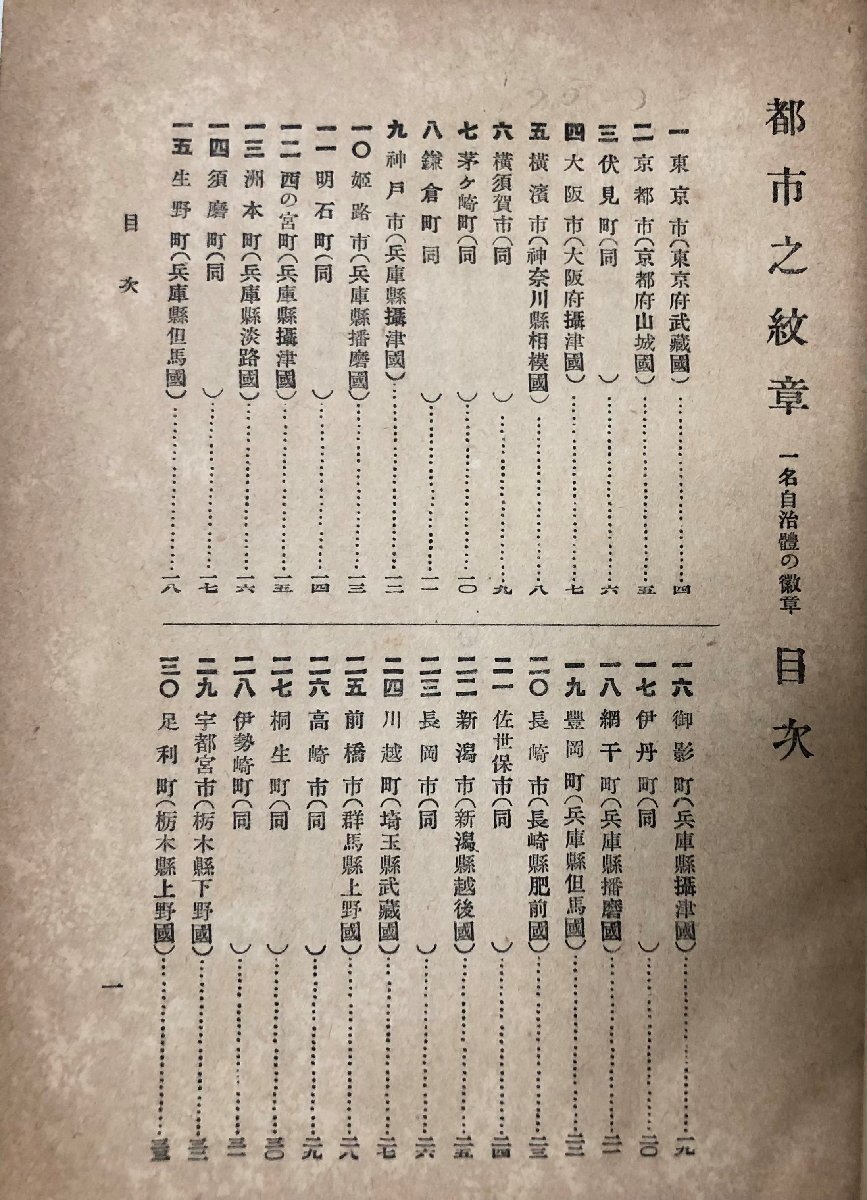 都市之紋章 一名自治體の徽章 目次
一 東京市(東京府武藏國)…………四
二 京都市(京都府山城國)…………五
三 伏見町(同)…………六
四 大阪市(大阪府攝津國)…………七
五 橫濱市(神奈川縣相模國)…………八
六 橫須賀市(同)…………九
七 茅ケ崎町(同)…………一〇
八 鎌倉町(同)…………一一
九 神戸市(兵庫縣攝津國)…………一二
一〇 姬路市(兵庫縣播磨國)…………一三
一一 明石町(同)…………一四
一二 西の宮町(兵庫縣攝津國)…………一五
一三 洲本町(兵庫縣淡路國)…………一六
一四 須磨町(同)…………一七
一五 生野町(兵庫縣但馬國)…………一八
一六 御影町(兵庫縣攝津國)…………一九
一七 伊丹町(同)…………二〇
一八 網干町(兵庫縣播磨國)…………二一
一九 豐岡町(兵庫縣但馬國)…………二二
二〇 長崎市(長崎縣肥前國)…………二三
二一 佐世保市(同)…………二四
二二 新潟市(新潟縣越後國)…………二五
二三 長岡市(同)…………二六
二四 川越町(埼玉縣武藏國)…………二七
二五 前橋市(群馬縣上野國)…………二八
二六 高崎市(同)…………二九
二七 桐生町(同)…………三〇
二八 伊勢崎町(同)…………三一
二九 宇都宮市(栃木縣下野國)…………三二
三〇 足利町(栃木縣上野國)…………三三
目次
一